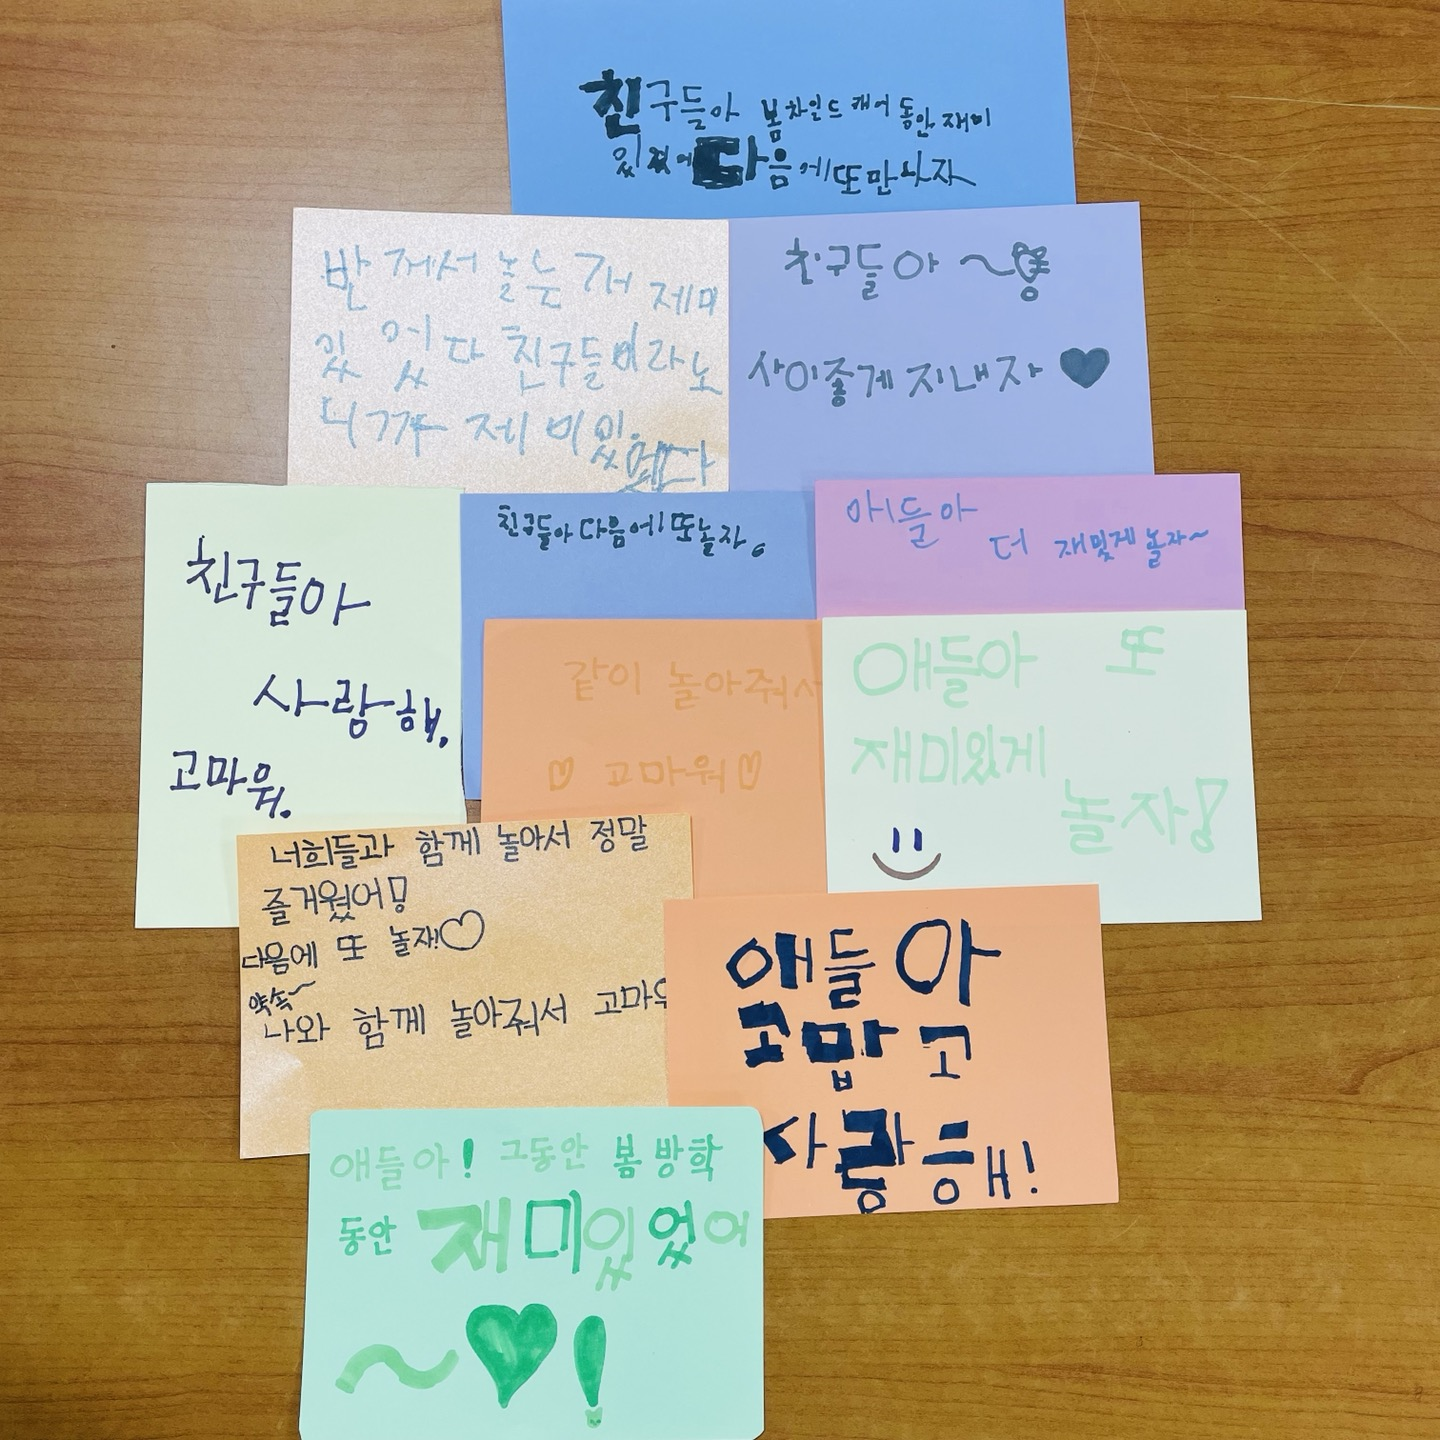 친구들아 봄차일드 캐어 동안 재미
있었어 다음에 또 만나자
반 게서 놀는 개 제미
있 었다 친구들이라 노
니까 제미있
었다
친구들아 ~
사이좋게 지내자 ♥
친구들아
사랑해.
고마워.
친구들아 다음에 또 놀자.
애들아
더 재밌게 놀자~
같이 놀아줘서
♡ 고마워 ♡
애들아 또
재미있게
놀자!
너희들과 함께 놀아서 정말
즐거웠어!
다음에 또 놀자!♡
약속~
나와 함께 놀아줘서 고마우
애들아
고맙고
사랑해!
애들아! 그동안 봄 방학
동안 재미있었어
~♥!